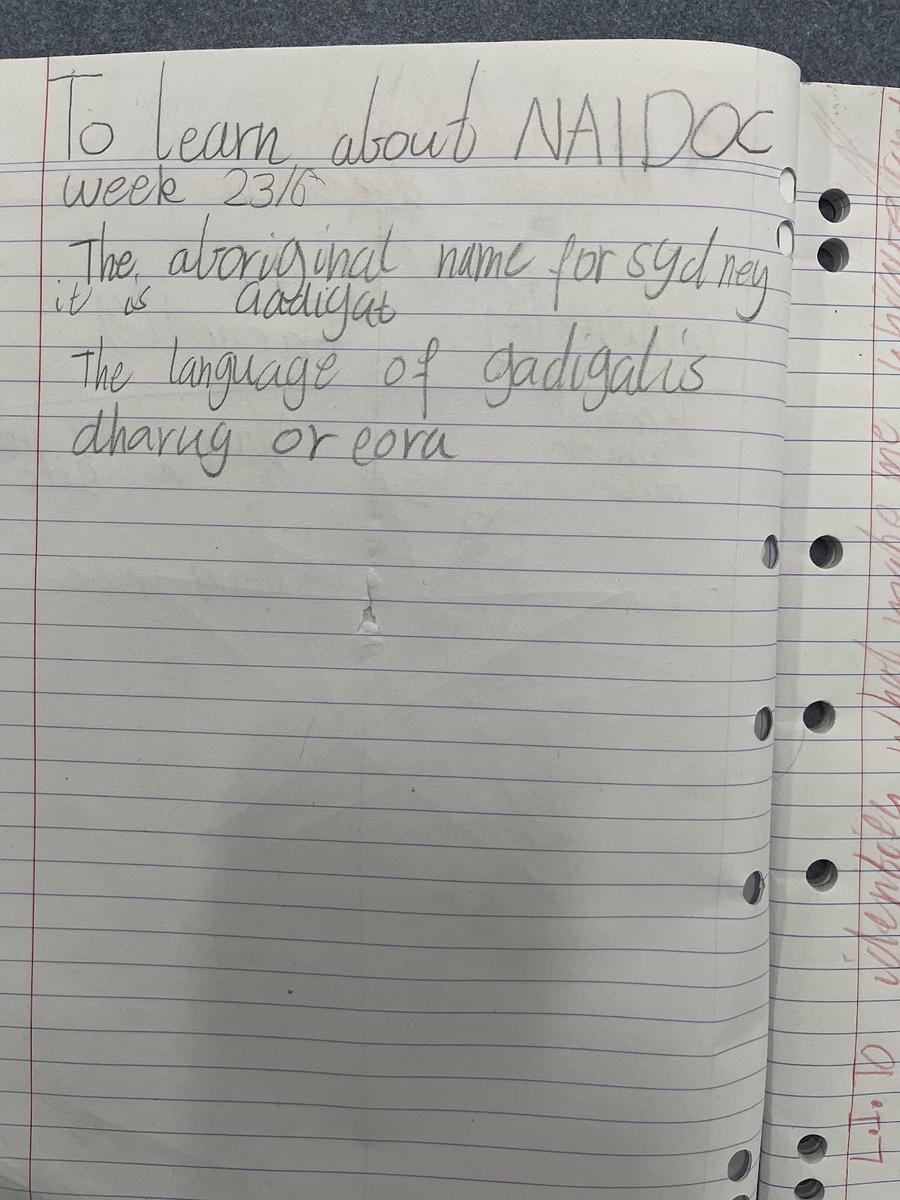 To learn about NAIDOC
week 23/6
The aboriginal name for sydney
it is Gadigal
The language of gadigal is
dharug or eora
L.T. identify what maybe me